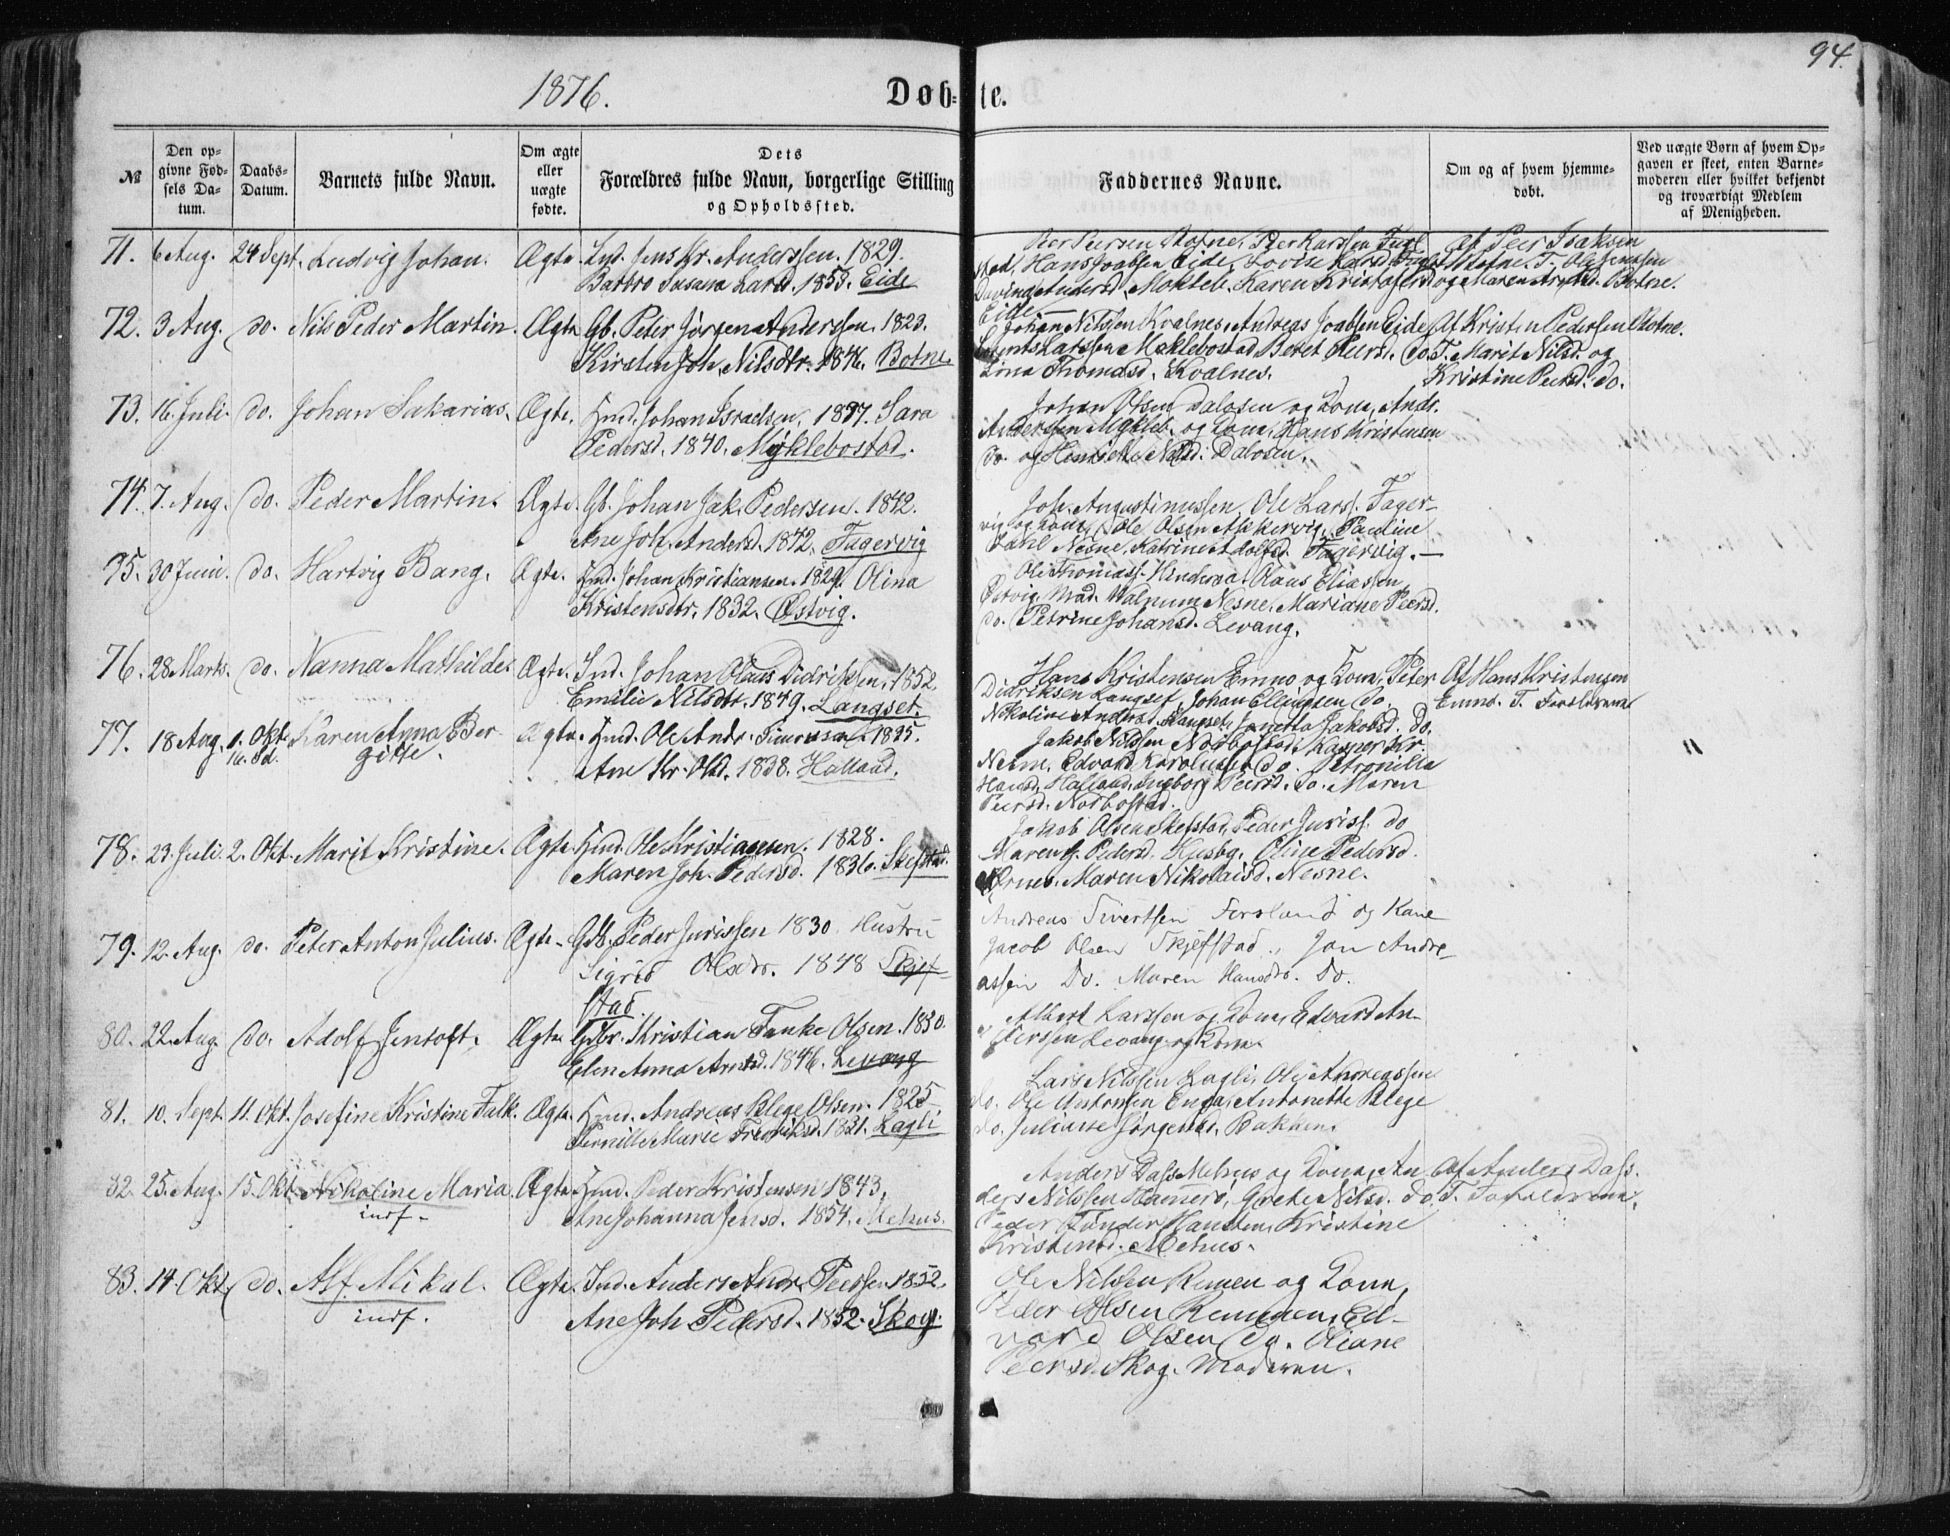 94.
1876.
Døb-te.
№
Den op-
givne Fød-
sels Da-
tum.
Daabs-
Datum.
Barnets fulde Navn.
Om ægte
eller
uægte
fødte.
Dets
Forældres fulde Navn, borgerlige Stilling
og Opholdssted.
Faddernes Navne.
Om og af hvem hjemme-
døbt.
Ved uægte Børn af hvem Op-
gaven er skeet, enten Barne-
moderen eller hvilket bekjendt
og troværdigt Medlem
af Menigheden.
71. 6 Aug. 24 Sept. Ludvig Johan. Ægte. Ind. Jens Kr. Anderssen. 1829.
Susana Larsd. 1853. Eide
Hans Joabsen Eide, Lovise
Andersd. Mokleb. Karen Kristofersd
Eide
af Peer Isaksen
og Maren Botne.
72. 3 Aug. do. Nils Peder Martin. Ægte Gb. Peter Jørgen Anderssen. 1823.
Kirsten Joh. Nilsdtr. 1846. Botne
Johan Nilssen Kvalnes, Andreas Joabsen Eide
Larssen Moklebostad Beret Peersd. do.
Lina Thomasd. Kvalnes.
Af Kristen Pedersen Botne.
T. Marit Nilsd. og
Kristine Peersd. do.
73. 16. Juli. do. Johan Sakarias. Ægte. Ind. Johan Israelsen. 1837. Sara
Pedersd. 1840. Myklebostad.
Johan Olsen Dalosen og Kona, Andr.
Anderssen Mykleb. og Kona, Hans Kristensen
do. og Nilsd. Dalosen.
74. 7. Aug. do. Peder Martin. Ægte. Gb. Johan Jak. Pedersen. 1842.
Ane Joh. Andersd. 1842. Fagervig
Joh. Augustinussen, Ole Larss. Fager-
vig og Kona, Ole Olsen Pauline
Dahl Nesne, Katrine Adolfsd. Fagervig.
75. 30 Juni. do. Hartvig Bang. Ægte. Ind. Johan Kristiansen. 1829. Olina
Kristensdtr. 1832. Østvig.
Ole Thomass. Olaus Eliassen
Østvig, Mad. Walnum Nesne, Mariane Peersd.
do. Petrine Johansd. Levang.
76. 28 Marts. do. Nanna Mathilde. Ægte. Ind. Johan Olaus Didriksen. 1852.
Emilie Nilsdtr. 1849. Langset.
Hans Kristensen Enmo og Kona, Peter
Didriksen Langset, Johan Ellingsen do.
Nikoline Andersd. Langset, Jakobsd. do.
Af Hans Kristensen
Enmo. T. Forældrene
77. 18 Aug. 1. Okt. Karen Anna Ber-
gitte.
Ægte. Ind. Ole Andr. 1835.
Ane Kr. Olsd. 1838. Halland.
Jakob Nilssen Norbostad, Kasper Kr.
Nesne, Edvard do. Petronilla
Hansd. Halland, Ingborg Peersd. do. Maren
Peersd. Norbostad.
78. 23. Juli. 2. Okt. Marit Kristine. Ægte Ind. Ole Kristiansen. 1828.
Maren Joh. Pedersd. 1836. Skefstad.
Jakob Olsen Skefstad, Peder Juriss. do
Maren J. Pedersd. Husby, Oline Pedersd.
Maren Nikolaisd. Nesne.
79. 12. Aug. do. Peter Anton Julius. Ægte. Gdb. Peder Jurissen 1830. Hustru
Sigrid Olsdr. 1848 Skjef-
stad.
Andreas Sivertsen Forsland og Kone
Jacob Olsen Skjefstad, Jon Andre-
assen Do. Maren Hansdtr. Do.
80. 22. Aug. do. Adolf Jentoft. Ægte Gdbr. Kristian Tanke Olsen. 1830.
Elen Anna Arntsd. 1846. Levang
Albert Larssen og Kona, Edvard An-
derssen Levang og Kona.
81. 10. Sept. 11. Okt. Josefine Kristine Falk. Ægte. Ind. Andreas Blege Olsen. 1825
Pernille Marie Fredriksd. 1831. Lagli
Lars Nilssen Lagli, Ole Andreassen
do. Ole Antonsen Enga, Antonette Blege
do. Juliane Jørgensd. Bakken.
82. 25. Aug. 15. Okt. Nikoline Maria
indf.
Ægte Ind. Peder Kristensen 1843.
Ane Johanna Jensd. 1854. Mehus.
Anders Dass Mehus og Kona, An-
ders Nilssen Hamerø, Grete Nilsd. do.
Peder Tønder Hansten, Kristine
Kristensd. Mehus.
Af Anders Dass.
T. Forældrene.
83. 14. Okt. do. Alf Mikal.
indf.
Ægte. Ind. Anders Andr. Peersen 1852.
Ane Joh. Pedersd. 1852. Skog.
Ole Nilsen Remen og Kona,
Peder Olsen Remmen, Ed-
vard Olsen do. Oliane
Peersd. Skog. Moderen.